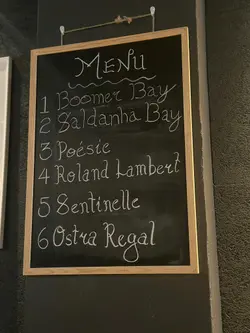 MENU
1 Boomer Bay
2 Saldanha Bay
3 Poésie
4 Roland Lambert
5 Sentinelle
6 Ostra Regal